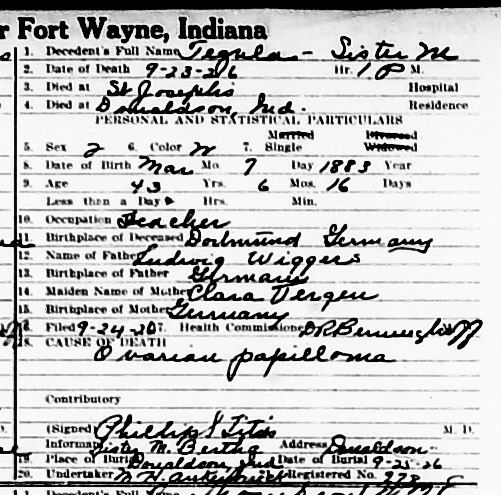 r Fort Wayne, Indiana
1. Decedent's Full Name Tegula - Sister M
2. Date of Death 9-23-26 Hr. 1 P M.
3. Died at St Josephs Hospital
4. Died at Donaldson, Ind. Residence
PERSONAL AND STATISTICAL PARTICULARS
Married Divorced
5. Sex 2 6. Color W 7. Single Widowed
8. Date of Birth Mar Mo. 7 Day 1883 Year
9. Age 43 Yrs. 6 Mos. 16 Days
Less than a Day Hrs. Min.
10. Occupation Teacher
11. Birthplace of Deceased Dortmund Germany
12. Name of Father Ludwig Wiggers
13. Birthplace of Father Germany
14. Maiden Name of Mother Clara Dergen
15. Birthplace of Mother Germany
Filed 9-24-26 17. Health Commissioner DR
18. CAUSE OF DEATH
Ovarian papilloma
Contributory
(Signed Phillip S Titus M. D.
Informant Sister M. Bertha Address Donaldson
19. Place of Burial Donaldson, Ind Date of Burial 9-25-26
20. Undertaker Registered No. 978
1. Decedent's Full